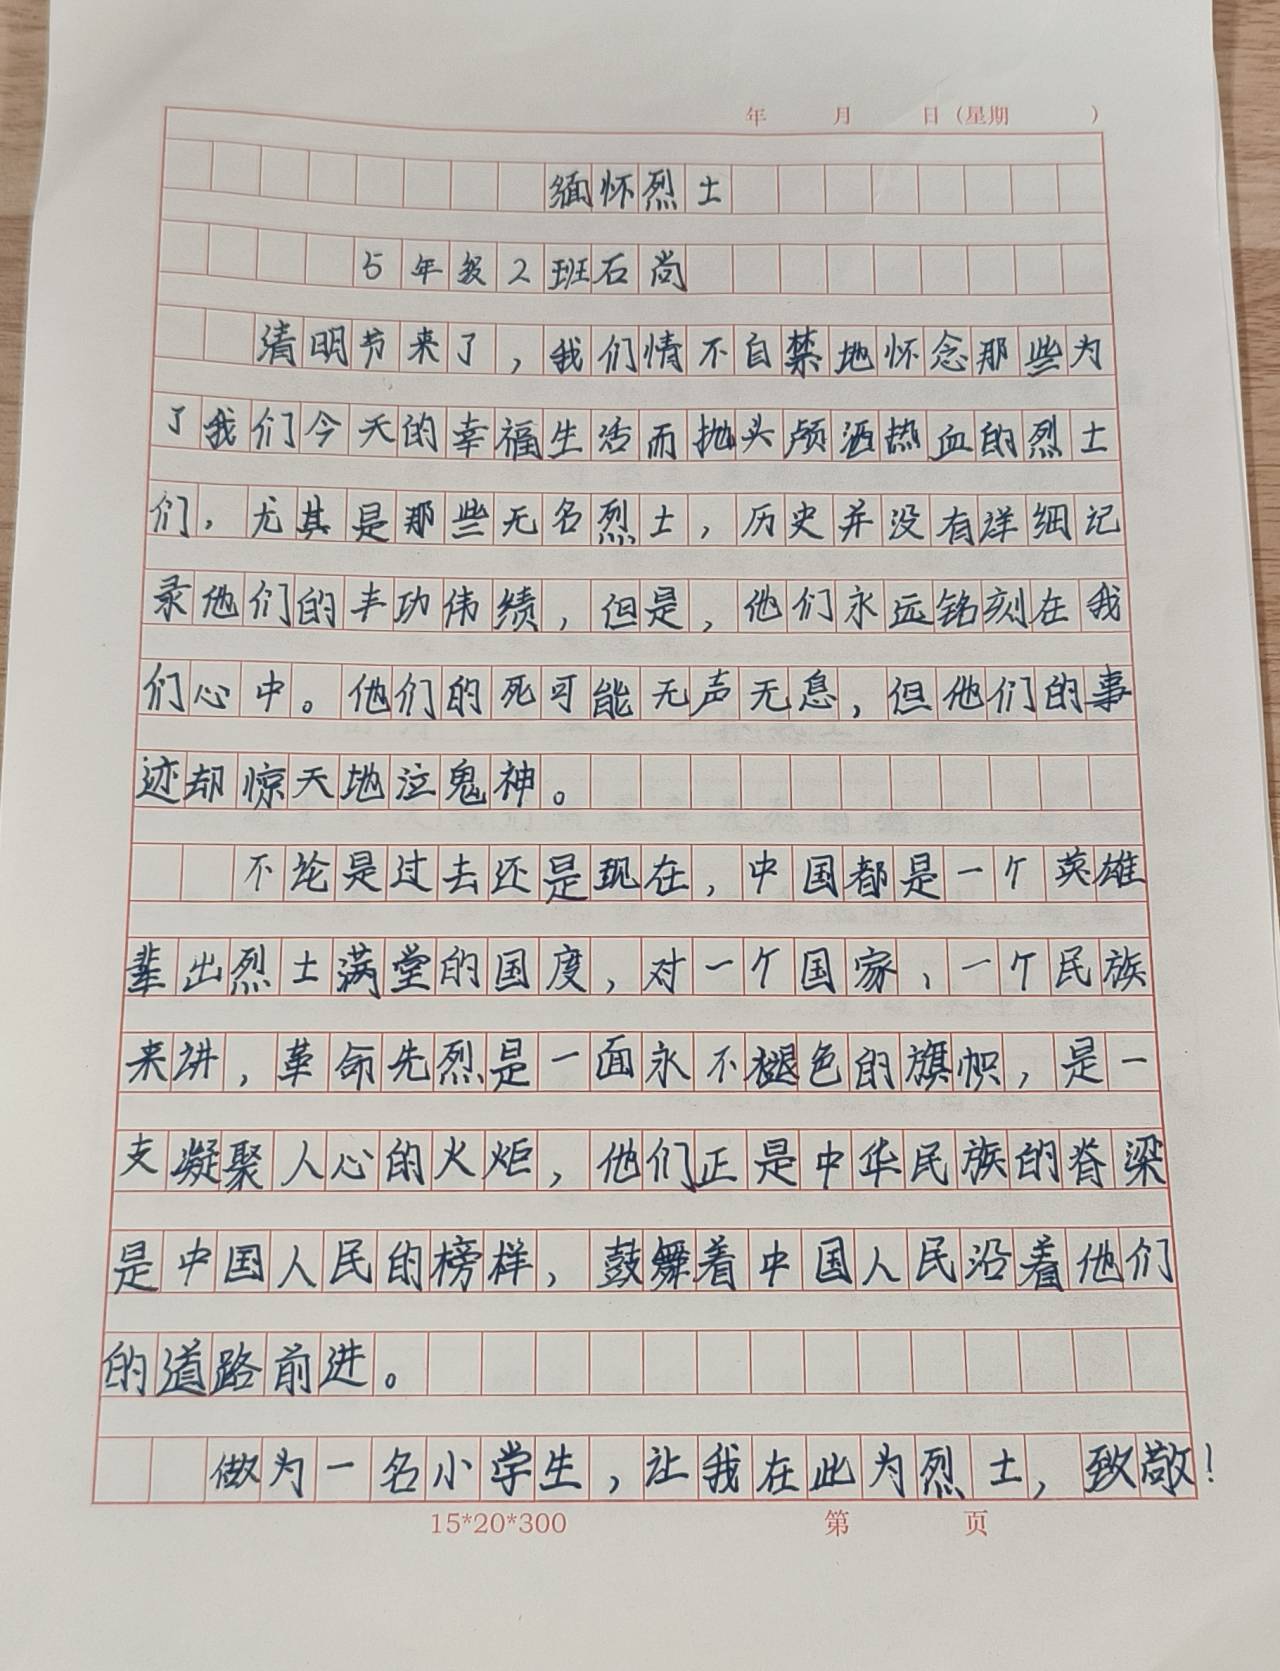 年 月 日（星期 ）
缅怀烈士
5年级2班石尚
清明节来了，我们情不自禁地怀念那些为
了我们今天的幸福生活而抛头颅洒热血的烈士
们，尤其是那些无名烈士，历史并没有详细记
录他们的丰功伟绩，但是，他们永远铭刻在我
们心中。他们的死可能无声无息，但他们的事
迹却惊天地泣鬼神。
不论是过去还是现在，中国都是一个英雄
辈出烈士满堂的国度，对一个国家、一个民族
来讲，革命先烈是一面永不褪色的旗帜，是一
支凝聚人心的火炬，他们正是中华民族的脊梁
是中国人民的榜样，鼓舞着中国人民沿着他们
的道路前进。
做为一名小学生，让我在此为烈士，致敬！
15*20*300 第 页